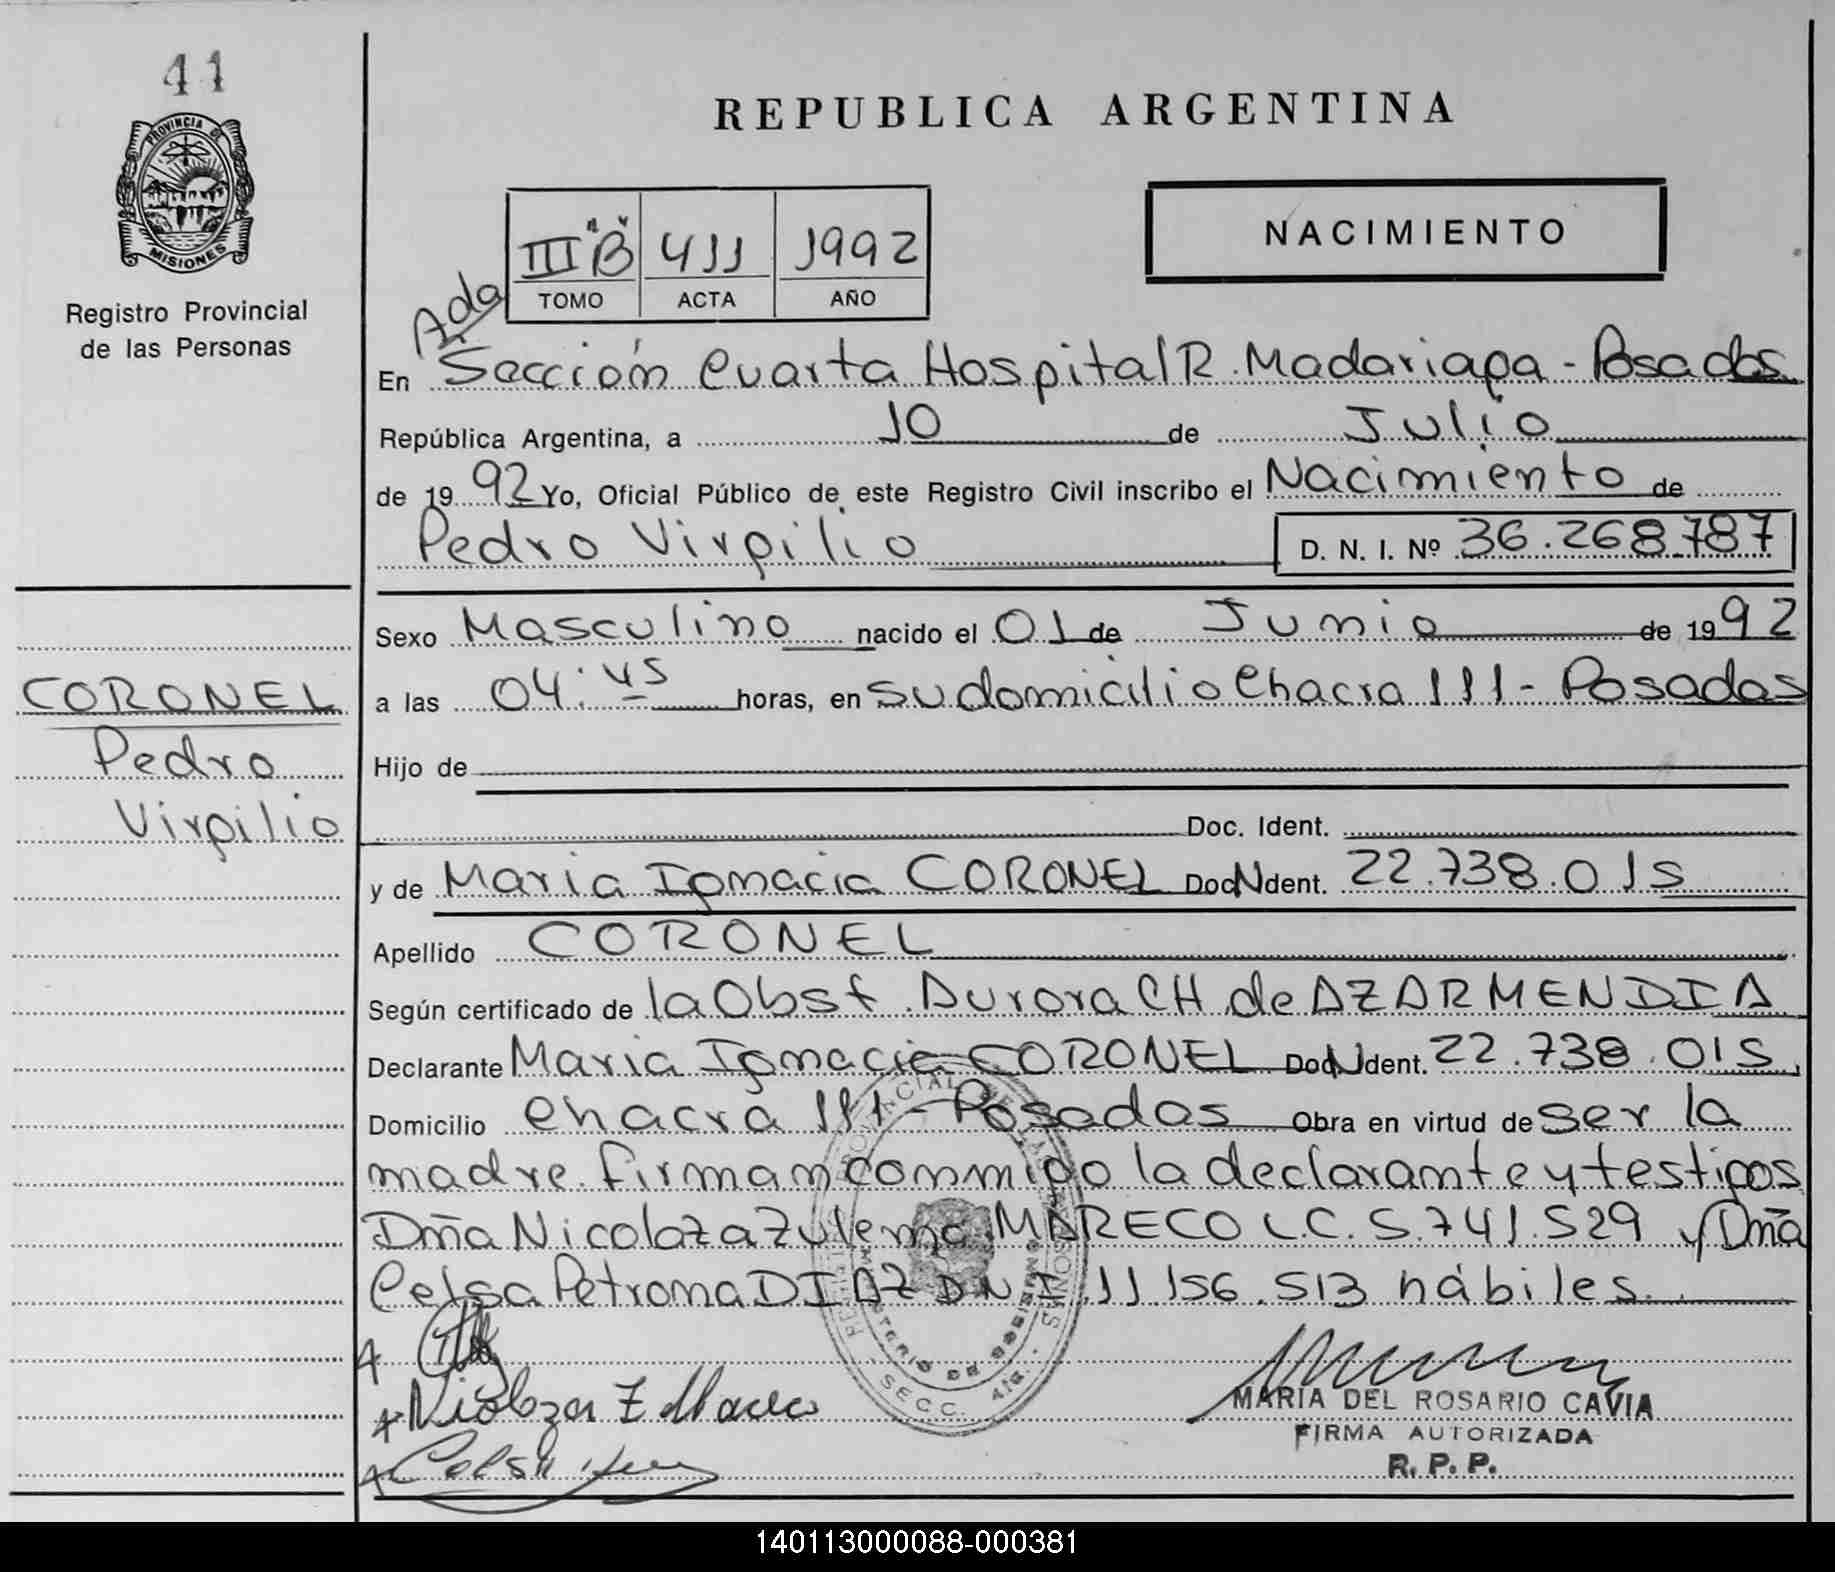 41
PROVINCIA DE
MISIONES
Registro Provincial
de las Personas
REPUBLICA ARGENTINA
NACIMIENTO
III "B" 411 1992
TOMO ACTA AÑO
Ada
En Sección Cuarta Hospital R. Madariaga - Posadas
República Argentina, a 10 de Julio
de 1992 Yo, Oficial Público de este Registro Civil inscribo el Nacimiento de
Pedro Virgilio D. N. I. Nº 36.268.787
Sexo Masculino nacido el 01 de Junio de 1992
a las 04:45 horas, en su domicilio Chacra 111 - Posadas
Hijo de
Doc. Ident.
y de Maria Ignacia CORONEL Doc N Ident. 22.738.015
Apellido CORONEL
Según certificado de la Obst. Aurora CH de AZARMENDIA
Declarante Maria Ignacia CORONEL Doc N Ident. 22.738.015
Domicilio Chacra 111 - Posadas Obra en virtud de ser la
madre. firman conmigo la declarante y testigos
Dña Nicolaza Zulema MARECO L.C. 5.741.529 y Dña
Celsa Petrona DIAZ D N I 11.156.513 hábiles.
CORONEL
Pedro
Virgilio
Nicolaza Z Mareco
Celsa
MARIA DEL ROSARIO CAVIA
FIRMA AUTORIZADA
R. P. P.
SECC. 4ta.
140113000088-000381